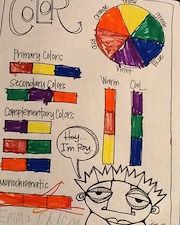 COLOR
Orange
Yellow
Green
Red
Blue
Violet
Primary Colors
Secondary Colors
Warm
Cool
Complementary Colors
Hey...
I'm Roy.
Monochromatic